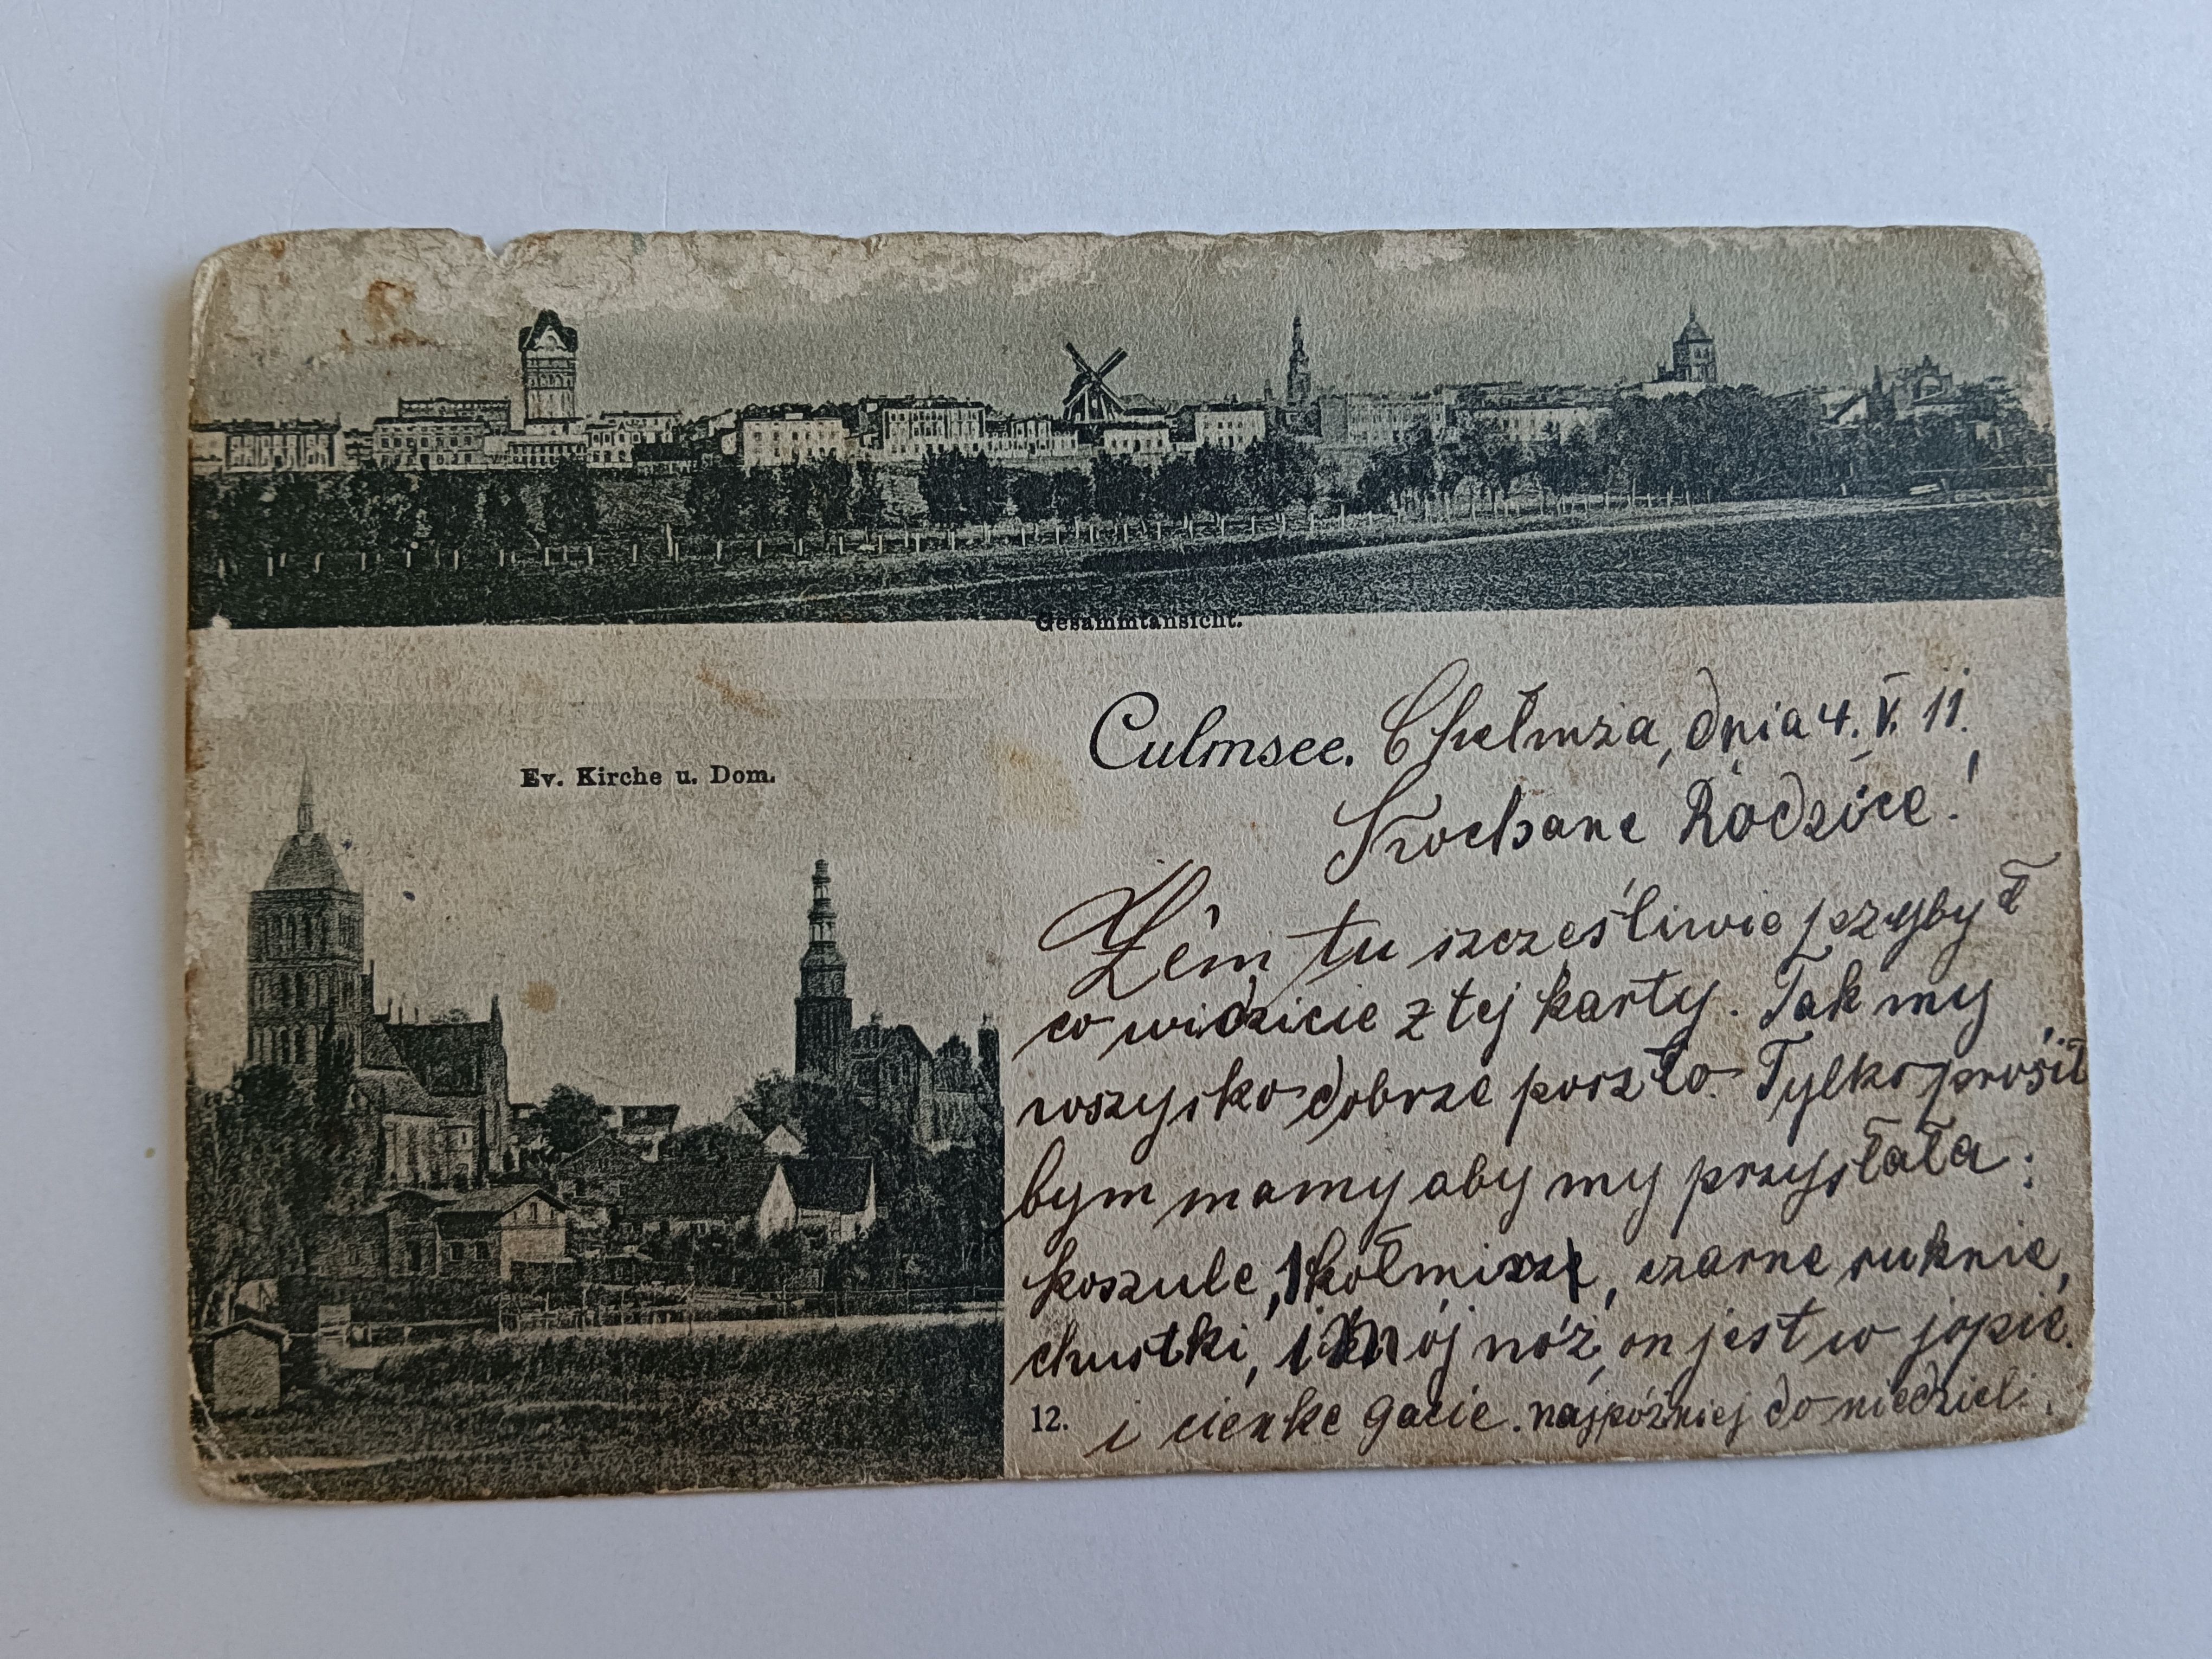 Gesammtansicht.
Ev. Kirche u. Dom.
Culmsee. Chełmża, dnia 4. V. 11.
Kochane Rodzice!
Żem tu szcześliwie przybył
co widzicie z tej karty. Tak my
wszysko dobrze poszło. Tylko prosił
bym mamy aby my przysłała:
koszule, 1 kołmirz, czarne suknie,
chustki, i mój nóż, on jest w jopie.
12. i cienke gacie. najpóźniej do niedzieli.